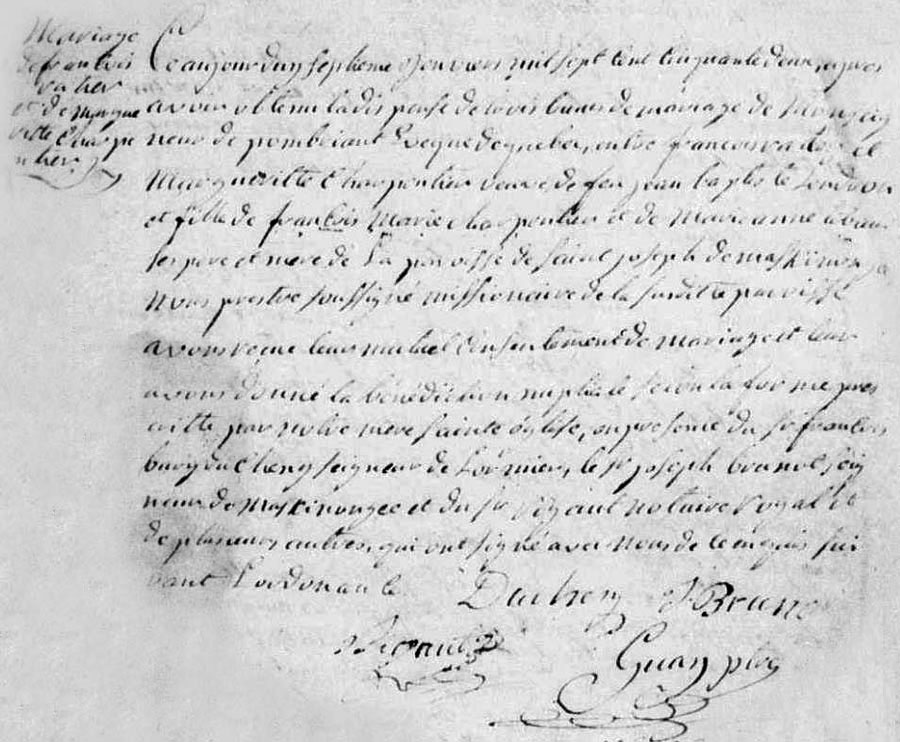 Mariage
de francois
vaher
et de margue
ritte Charpe
ntier
Ce aujourduy septieme Janviers mil sept cent cinquante deux apres
avoir obtenu la dispense de trois bancs de mariage de Monseig
neur de pombriant Eveque de quebec, entre francois vaher et
Margueritte Charpentier veuve de feu jean bap
et fille de francois Marie charpentier et de Marie anne
ses pere et mere de La paroisse de saint joseph de maskinonge
Nous prestre soussigné missionaire de la susditte paroisse
avons reçue leur mutuel consentement de mariage et leur
avons donné la bénédiction nuptiale selon la forme pres
critte par notre mere sainte église, en presence du sr francois
seigneur de le sr joseph brunel seig
neur de Maskinongee et du sr rigault notaire royal et
de plusieurs autres, qui ont signé avec nous de ce enquis sui
vant Lordonance
Ducheny J Brunel
Rigault
Guay ptre